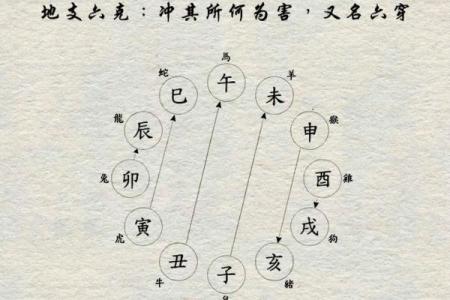 地支六克：冲其所何为害，又名六穿
馬
蛇 午 羊
巳 未
龍 辰 申 猴
兔 卯 酉 雞
虎 寅 戌 狗
丑 亥
牛 子 豬